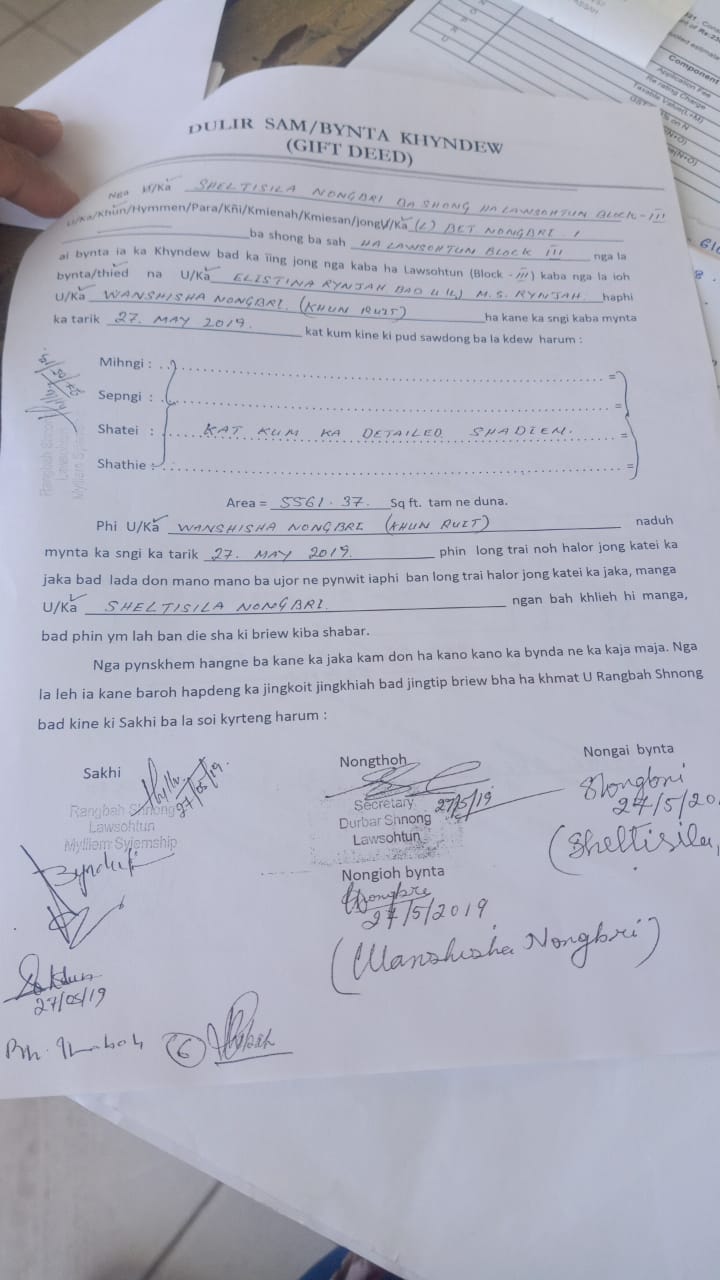 DULIR SAM/BYNTA KHYNDEW
(GIFT DEED)
Nga U/Ka SHELTISILA NONGBRI BA SHONG HA LAWSOHTUN BLOCK-III
U/Ka/Khun/Hymmen/Para/Kñi/Kmienah/Kmiesan/jong U/Ka (L) BET NONGBRI
ba shong ba sah HA LAWSOHTUN BLOCK III nga la
ai bynta ia ka Khyndew bad ka ïing jong nga kaba ha Lawsohtun (Block - III) kaba nga la ioh
bynta/thied na U/Ka ELISTINA RYNJAH BAD U (L) M.S. RYNJAH haphi
U/Ka WANSHISHA NONGBRI. (KHUN RUIT) ha kane ka sngi kaba mynta
ka tarik 27. MAY 2019. kat kum kine ki pud sawdong ba la kdew harum :
Mihngi :
Sepngi :
Shatei : KAT KUM KA DETAILED SHADIEM.
Shathie :
Area = 5561.37. Sq ft. tam ne duna.
Phi U/Ka WANSHISHA NONGBRI (KHUN RUIT) naduh
mynta ka sngi ka tarik 27. MAY 2019. phin long trai noh halor jong katei ka
jaka bad lada don mano mano ba ujor ne pynwit iaphi ban long trai halor jong katei ka jaka, manga
U/Ka SHELTISILA NONGBRI ngan bah khlieh hi manga,
bad phin ym lah ban die sha ki briew kiba shabar.
Nga pynskhem hangne ba kane ka jaka kam don ha kano kano ka bynda ne ka kaja maja. Nga
la leh ia kane baroh hapdeng ka jingkoit jingkhiah bad jingtip briew bha ha khmat U Rangbah Shnong
bad kine ki Sakhi ba la soi kyrteng harum :
Sakhi
27/05/19.
Rangbah Shnong
Lawsohtun
Mylliem Syiemship
27/05/19
Nongthoh
27/5/19
Secretary
Durbar Shnong
Lawsohtun
Nongioh bynta
27/5/2019
(Wanshisha Nongbri)
Nongai bynta
SNongbri
27/5/20
(Sheltisila,